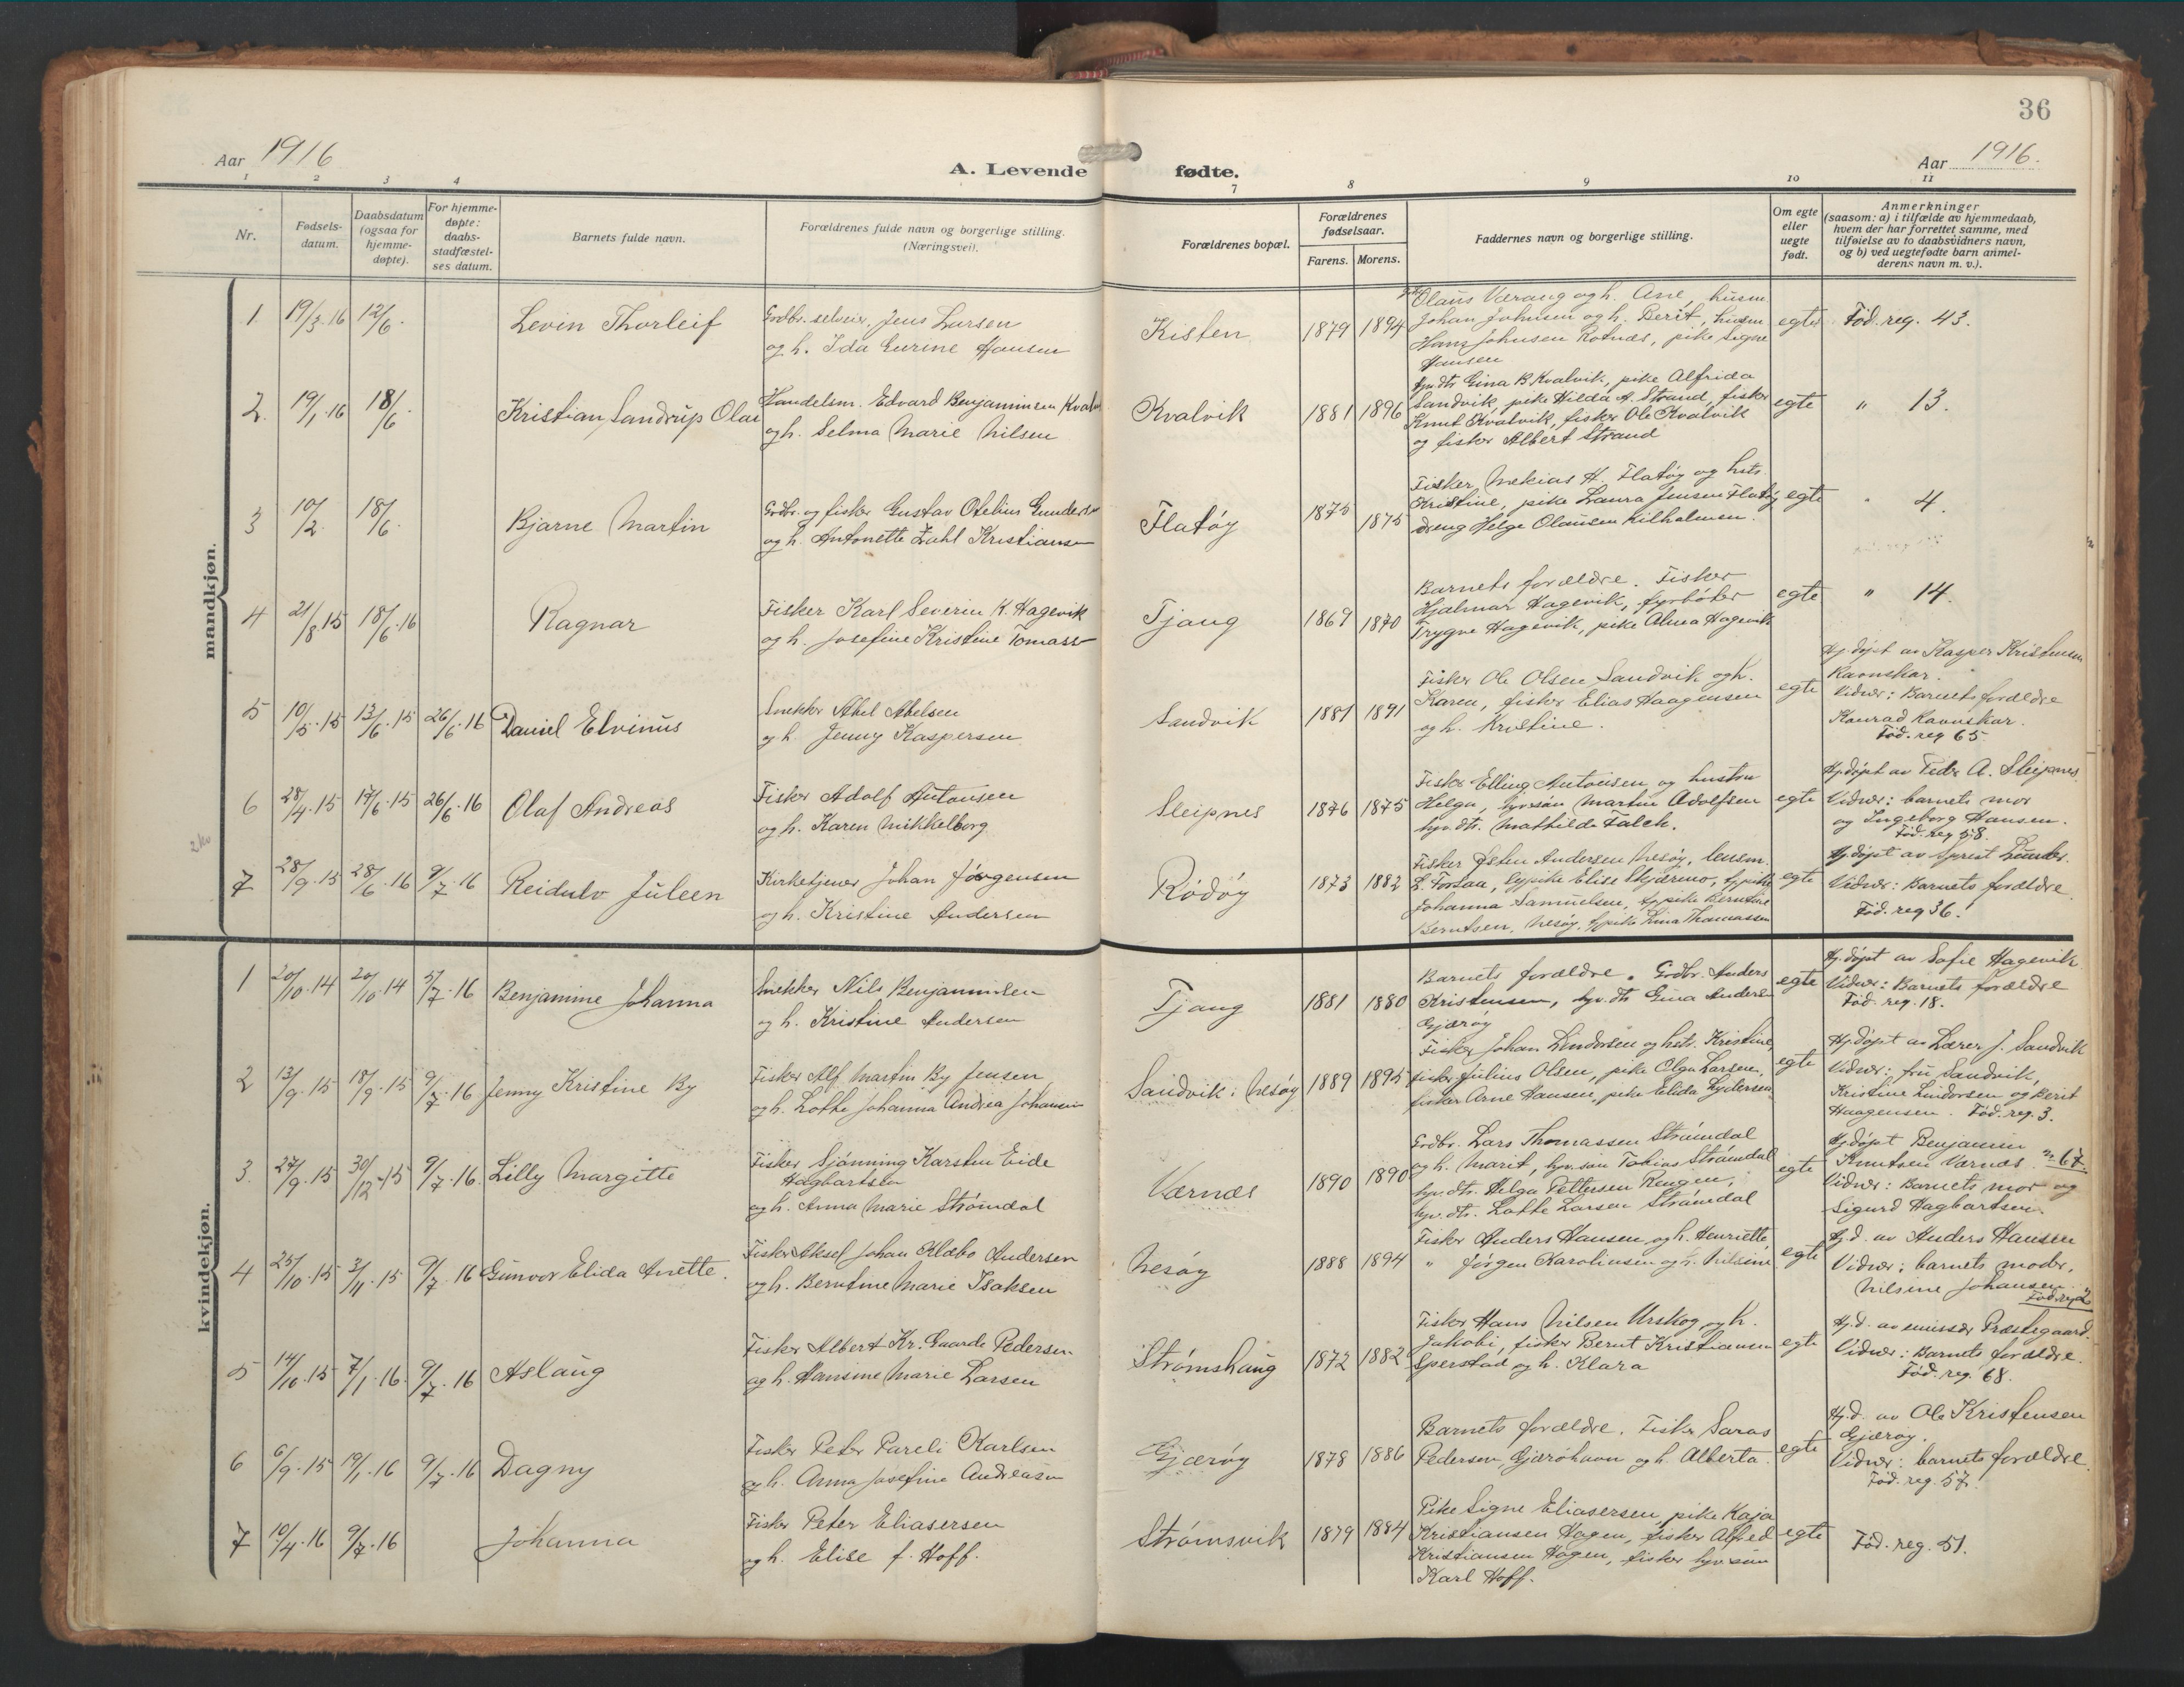 36
Aar 1916
A. Levende fødte.
Aar 1916.
1 2 3 4 7 8 9 10 11
Nr.
Fødsels-
datum.
Daabsdatum
(ogsaa for
hjemme-
døpte).
For hjemme-
døpte:
daabs-
stadfæstel-
ses datum.
Barnets fulde navn.
Forældrenes fulde navn og borgerlige stilling.
(Næringsvei).
Forældrenes bopæl.
Forældrenes
fødselsaar.
Farens. Morens.
Faddernes navn og borgerlige stilling.
Om egte
eller
uegte
født.
Anmerkninger
(saasom: a) i tilfælde av hjemmedaab,
hvem der har forrettet samme, med
tilføielse av to daabsvidners navn,
og b) ved uegtefødte barn anmel-
derens navn m. v.).
mandkjøn.
1 19/3.16 12/6. Levin Thorleif
Grdbr. selveier, Jens Larsen
og h. Ida Eurine Hansen
Kisten 1879 1894
Olaus Værang og h. Ane, husm.
Johan Johnsen og h. Berit, husm
Hans Johnsen Rotnæs, pike Signe
Hansen
egte Fød. reg. 43.
2. 19/1.16 18/6. Kristian Sandrup Olai
Handelsm. Edvard Benjaminsen Kvalvik
og h. Selma Marie Nilsen
Kvalvik 1881 1896
hjv. dtr Gina B Kvalvik, pike Alfrida
Sandvik, pike Hilda A. Strand, fisker
Knut Kvalvik, fisker Ole Kvalvik
og fisker Albert Strand
egte " 13.
3 10/2 18/6. Bjarne Martin
Grdbr. og fisker Gustav Otelius Gundersen
og h. Antonette Zahl Kristiansen
Flatøy 1875 1875
Fisker Mekias H. Flatøy og hstr.
Kristine, pike Laura Jensen Flatøy
dreng Helge Olausen Kilholmen.
egte " 4.
4 21/8.15 18/6.16 Ragnar
Fisker Karl Severin K. Hagevik
og h. Josefine Kristine Tomass
Tjang 1869 1870
Barnets forældre. Fisker
Hjalmar Hagevik, fyrbøter
Trygve Hagevik, pike Alma Hagevik
egte " 14.
5 10/5.15 13/6.15 26/6.16 Daniel Elvinus
Snekker Abel Abelsen
og h. Jenny Kaspersen
Sandvik 1881 1891
Fisker Ole Olsen Sandvik og h.
Karen, fisker Elias Haagensen
og h. Kristine.
egte
Hj. døpt av Kasper Kristensen
Ravnskar.
Vidner: Barnets forældre
Konrad Ravnskar.
Fød. reg 65.
6 28/4.15 17/6.15 26/6.16 Olaf Andreas
Fisker Adolf Antonsen
og h. Karen Mikkelborg
Sleipnes 1876 1875
Fisker Elling Antonsen og hustru
Helga, hjv. søn Martin Adolfsen
hjv. dtr. Mathilde Falch.
egte
Hj. døpt av Fedr. A. Sleipnes.
Vidner: barnets mor
og Ingeborg Hansen.
Fød. reg 58.
7 28/9.15 28/6.16 9/7.16 Reidulv Juleen
Kirketjener Johan Jørgensen
og h. Kristine Andersen
Rødøy 1873 1882
Fisker Østen Andersen Nesøy, lensm.
L. Forsaa, tjpike Elise Skjærmo, tjpike
Johanna Samuelsen, tjpike Berntine
Berntsen, Nesøy, tjpike Lina Thomassen
egte
Hj. døpt av Sprest Lunder.
Vidner: Barnets forældre
Fød. reg 36.
kvindekjøn.
1 20/10.14 20/10.14 5/7.16 Benjamine Johanna
Snekker Nils Benjaminsen
og h. Kristine Andersen
Tjang 1881 1880
Barnets forældre. Grdbr. Anders
Kristensen, hjv. dtr Gina Andersen
Gjærøy
egte
Hj. døpt av Sofie Hagevik
Vidner: Barnets forældre
Fød. reg. 18.
2 13/9.15 18/9.15 9/7.16 Jenny Kristine By
Fisker Alf Martin By Jensen
og h. Lotte Johanna Andrea Johansen
Sandvik i Nesøy 1889 1895
Fisker Johan Lindorsen og hstr. Kristine,
fisker Julius Olsen, pike Olga Larsen,
fisker Arne Hansen, pike Elida Lydersen
egte
Hj. døpt av Lærer J. Sandvik
Vidner: fru Sandvik,
Kristine Lindorsen og Berit
Haagensen. Fød. reg. 3.
3. 27/9.15 30/12.15 9/7.16. Lilly Margitte
Fisker Sjønning Karsten Eide
Hagbartsen
og h. Anna Marie Strømdal
Værnæs 1890 1890
Grdbr. Lars Thomassen Strømdal
og h. Marit, hjv. søn Tobias Strømdal
hjv. dtr. Helga Pettersen Rengen,
hjv. dtr. Lotte Larsen Strømdal
egte
Hj. døpt Benjamin
Knutsen Værnæs. n. 67.
Vidner: Barnets mor og
Sigurd Hagbartsen.
4 25/10.15 3/11.15 9/7.16 Gunvor Elida Anette.
Fisker Aksel Johan Klæbo Andersen
og h. Berntine Marie Isaksen
Nesøy 1888 1894
Fisker Anders Hansen og h. Henriette
" Jørgen Karolinsen og h. Nilsine
egte
Hj. d. av Anders Hansen
Vidner: barnets moder,
Nilsine Johansen.
Fød. reg 2
5 14/10.15 7/1.16. 9/7.16 Aslaug
Fisker Albert Kr. Gaarde Pedersen
og h. Hansine Marie Larsen
Strømshaug 1872 1882
Fisker Hans Nilsen Urskog og h.
Jakobi, fisker Bernt Kristiansen
Sperstad og h. Klara
egte
Hj. d. av emissær Præstegaard.
Vidner: Barnets forældre.
Fød. reg. 68.
6 6/9.15 19/1.16 9/7.16 Dagny
Fisker Peter Pareli Karlsen
og h. Anna Josefine Andreasen
Gjærøy 1878 1886
Barnets forældre. Fisker Saras
Pedersen, Gjærøhavn og h. Alberta.
egte
Hj. d. av Ole Kristensen
Gjærøy.
Vidner: barnets forældre.
Fød. reg. 57.
7 10/4.16 9/7.16 Johanna
Fisker Peter Eliasersen
og h. Elise f. Hoff.
Strømsvik 1879 1884
Pike Signe Eliasersen, pike Kaja
Kristiansen Hagen, fisker Alfred
Kristiansen Hagen, fisker hjv. søn
Karl Hoff.
egte Fød. reg. 51.